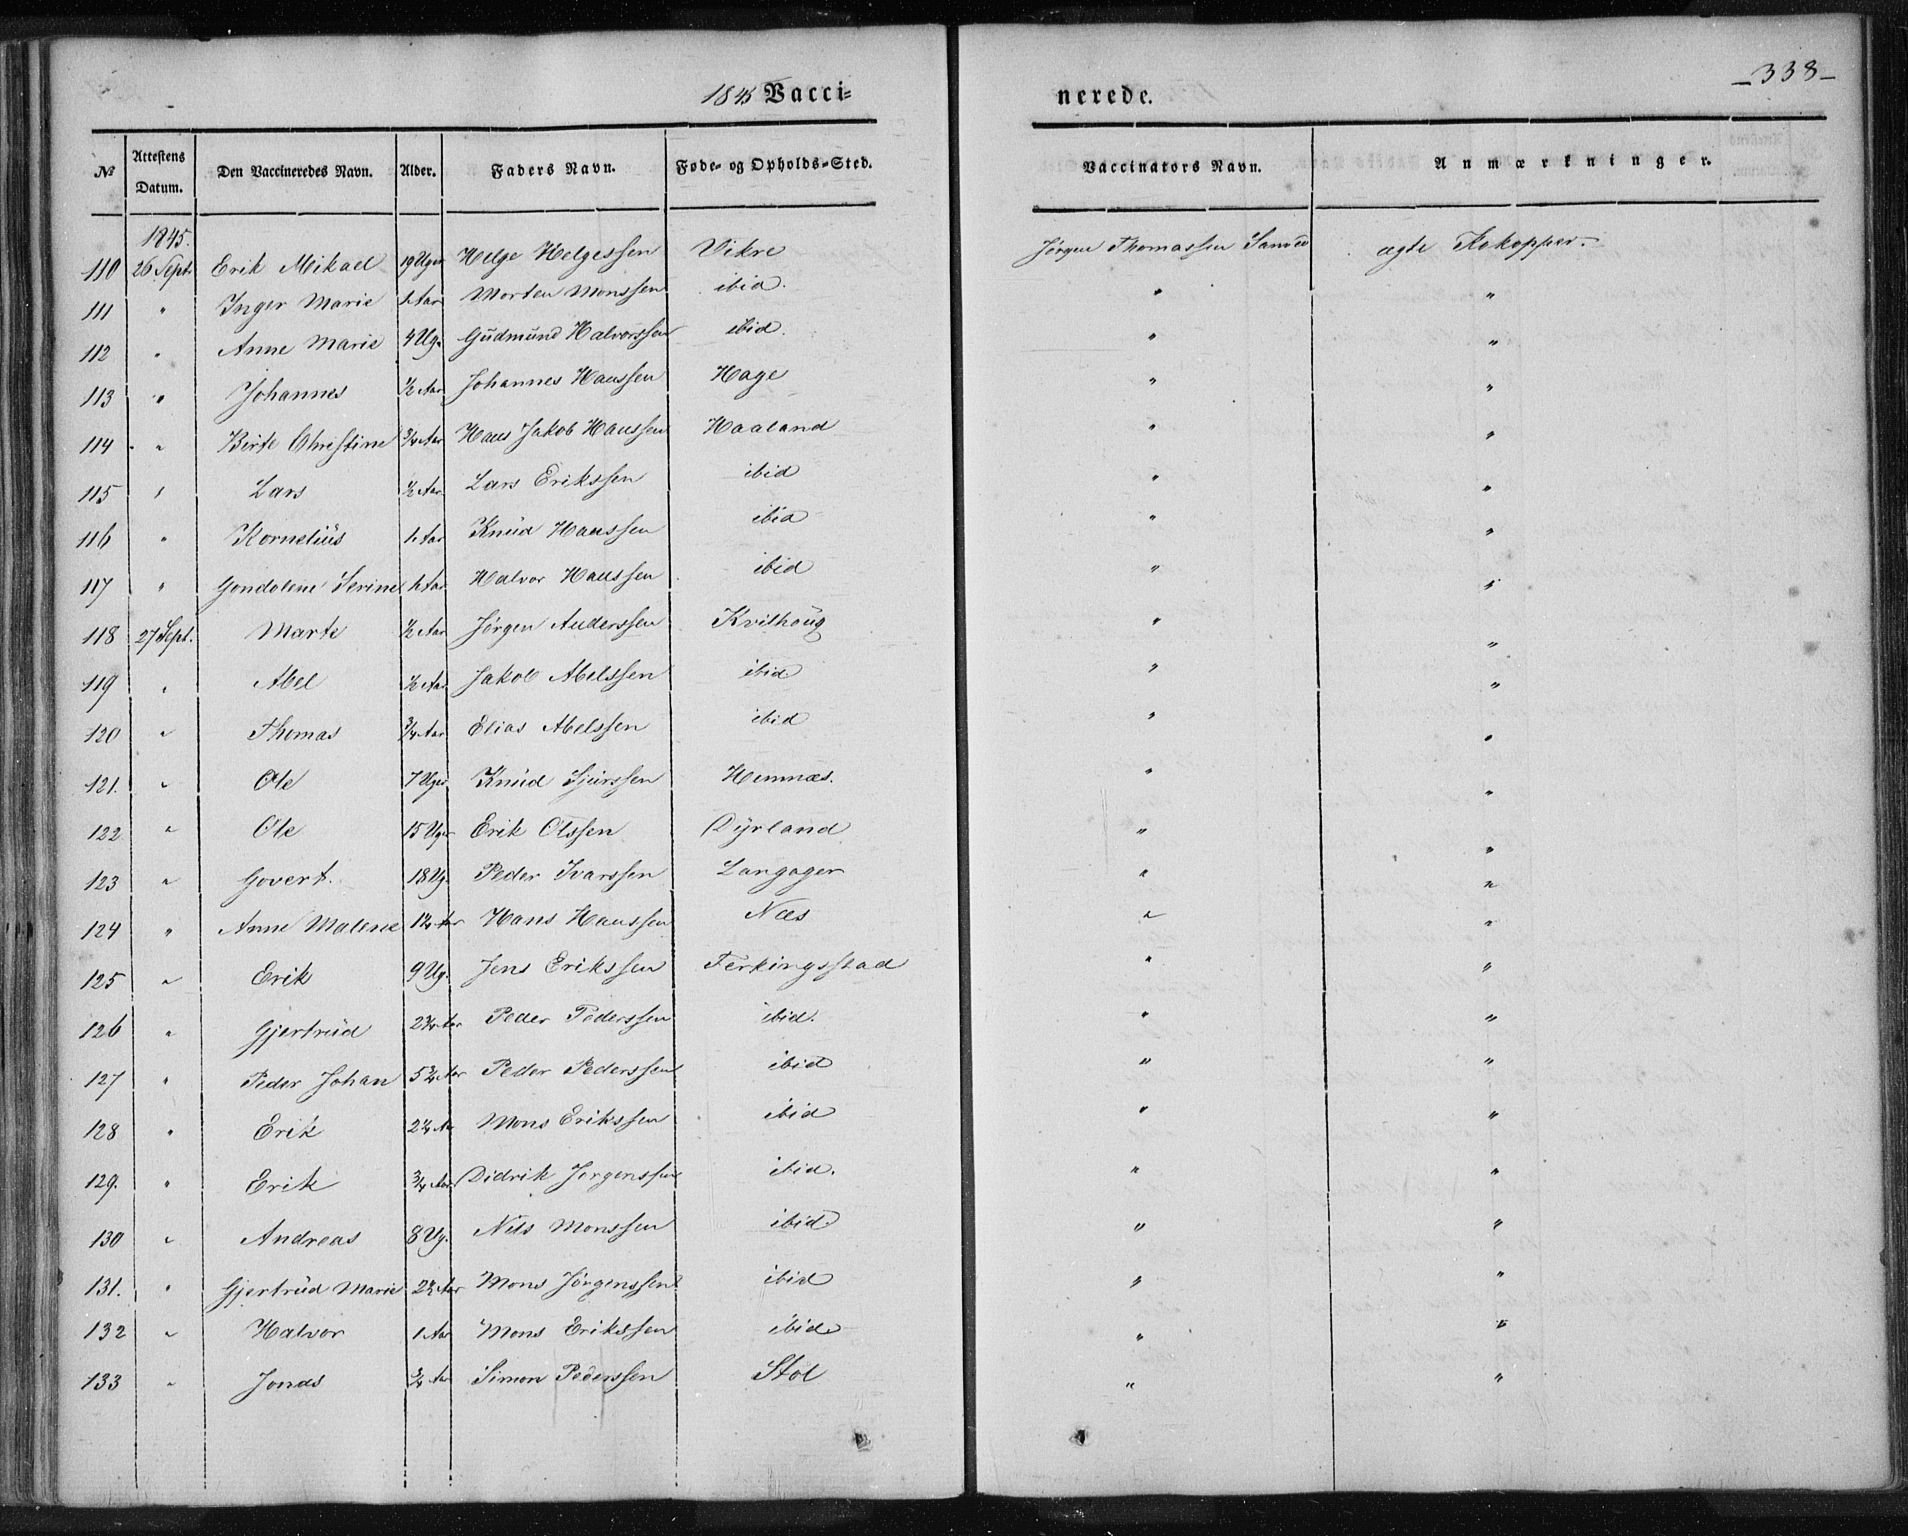 -338-
1845 Vacci= nerede.
No Attestens Datum. Den Vaccineredes Navn. Alder. Faders Navn. Føde- og Opholds-Sted. Vaccinators Navn. Anmærkninger.
1845.
110 26 Sept. Erik Mikael 19 Uger Helge Helgessen Vikre Jørgen Thomassen Sanved ægte Kokopper.
111 " Inger Marie 1 Aar Morten Monssen ibid. " "
112 " Anne Marie 4 Ug. Gudmund Halvorssen ibid. " "
113 " Johannes ½ Aar Johannes Hanssen Hage " "
114 " Birte Christine ¾ Aar Hans Jakob Hanssen Haaland " "
115 " Lars ½ Aar Lars Erikssen ibid " "
116 " Kornelius 1 Aar Knud Hanssen ibid " "
117 " Gondolene Serine 1 Aar Halvor Hanssen ibid " "
118 27 Sept. Marte ½ Aar Jørgen Anderssen Kvithoug " "
119 " Abel ½ Aar Jakob Abelssen ibid " "
120 " Thomas ¾ Aar Elias Abelssen ibid " "
121. " Ole 7 Uger Knud Sjurssen Hemnæs. " "
122 " Ole 15 Uger Erik Olssen Dyrland " "
123 " Govert. 18 Ug. Peder Ivarssen Langager " "
124 " Anne Malene 1¼ Aar Hans Hanssen Næs " "
125 " Erik 9 Ug. Jens Erikssen Ferkingsstad " "
126 " Gjertrud 2¾ Aar Peder Pederssen ibid. " "
127 " Peder Johan 5¾ Aar Peder Pederssen ibid " "
128 " Erik 2¼ Aar Mons Erikssen ibid " "
129. " Erik ¾ Aar Didrik Jørgenssen ibid. " "
130 " Andreas 8 Ug. Nils Monssen ibid. " "
131. " Gjertrud Marie 2½ Aar Mons Jørgenssen ibid " "
132 " Halvor 1 Aar Mons Erikssen ibid. " "
133 " Jonas ¾ Aar Simon Pederssen Stol " "